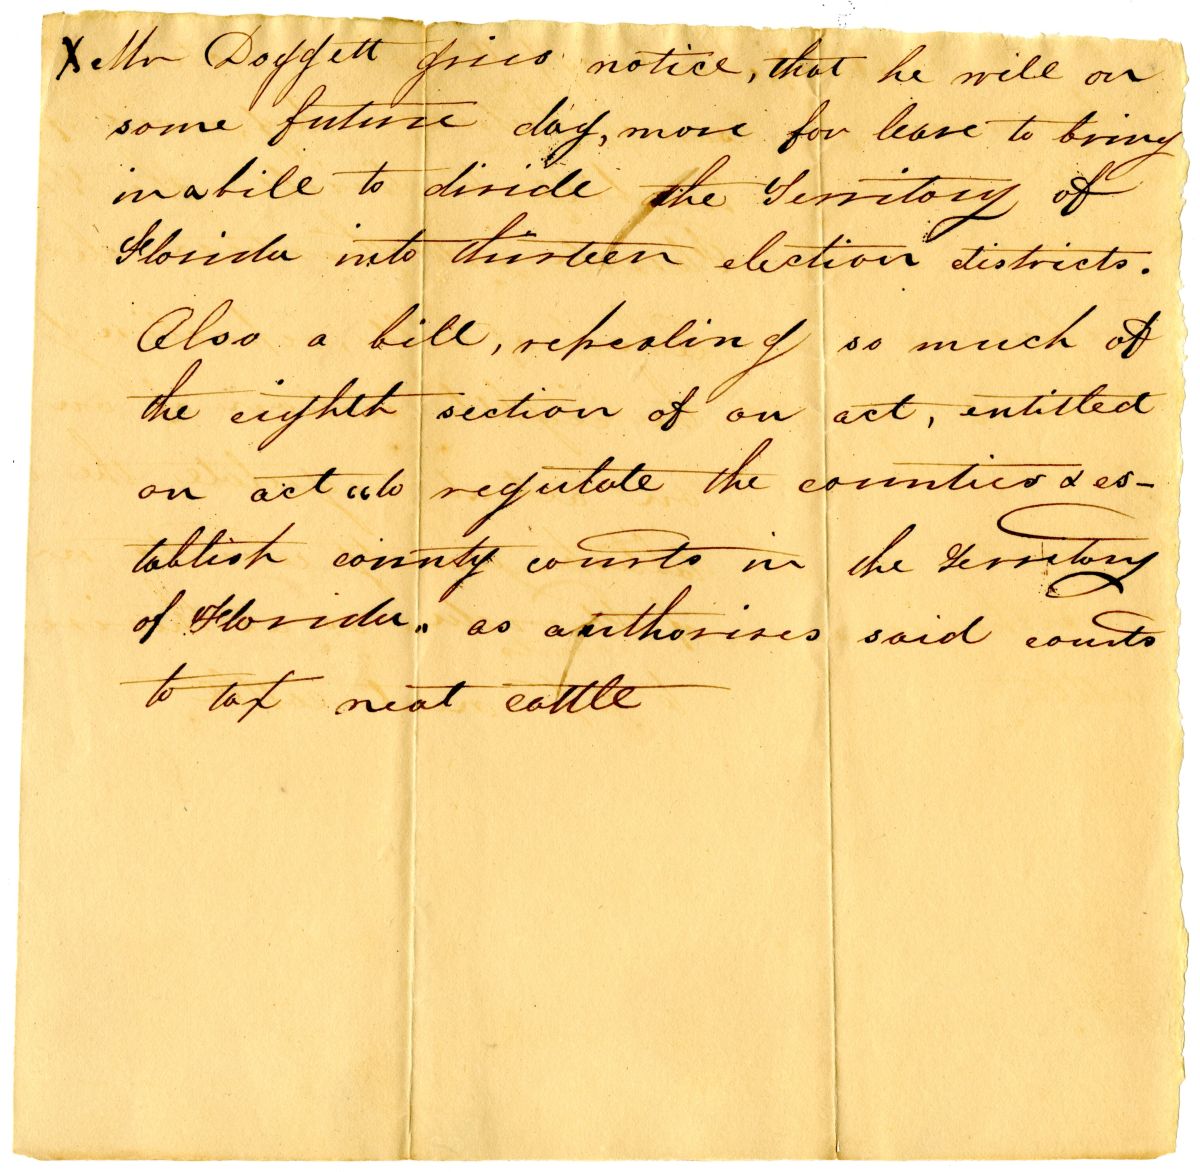 X Mr Doggett gives notice, that he will on
some future day, move for leave to bring
in a bill to divide the Territory of
Florida into thirteen election districts.
Also a bill, repealing so much of
the eighth section of an act, entitled
an act "to regulate the counties & es-
tablish county courts in the Territory
of Florida" as authorises said courts
to tax neat cattle